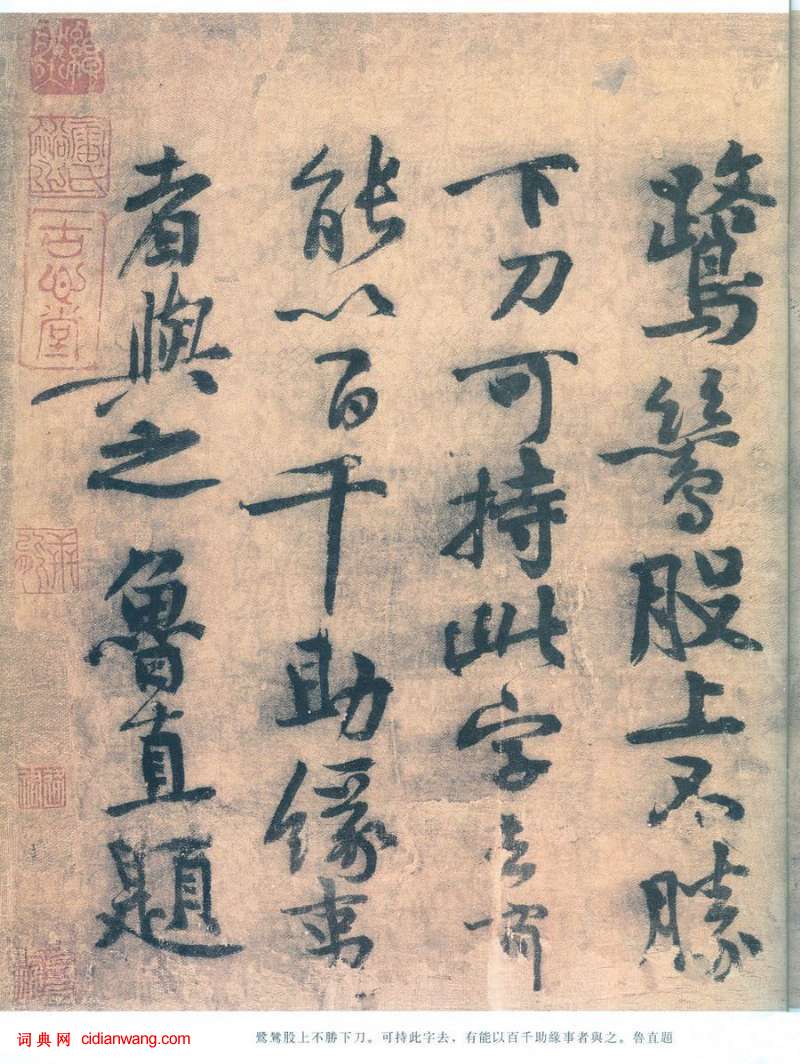 鷺鷥股上不勝
下刀可持此字去有
能以百千助緣事
者與之魯直題
词典网 cidianwang.com
鷺鷥股上不勝下刀。可持此字去，有能以百千助緣事者與之。魯直題